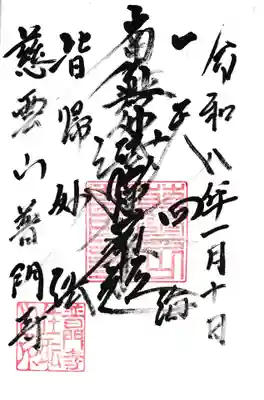 令和八年一月十日
一天四海
南無妙法蓮華経
皆帰妙法
慈雲山普門寺